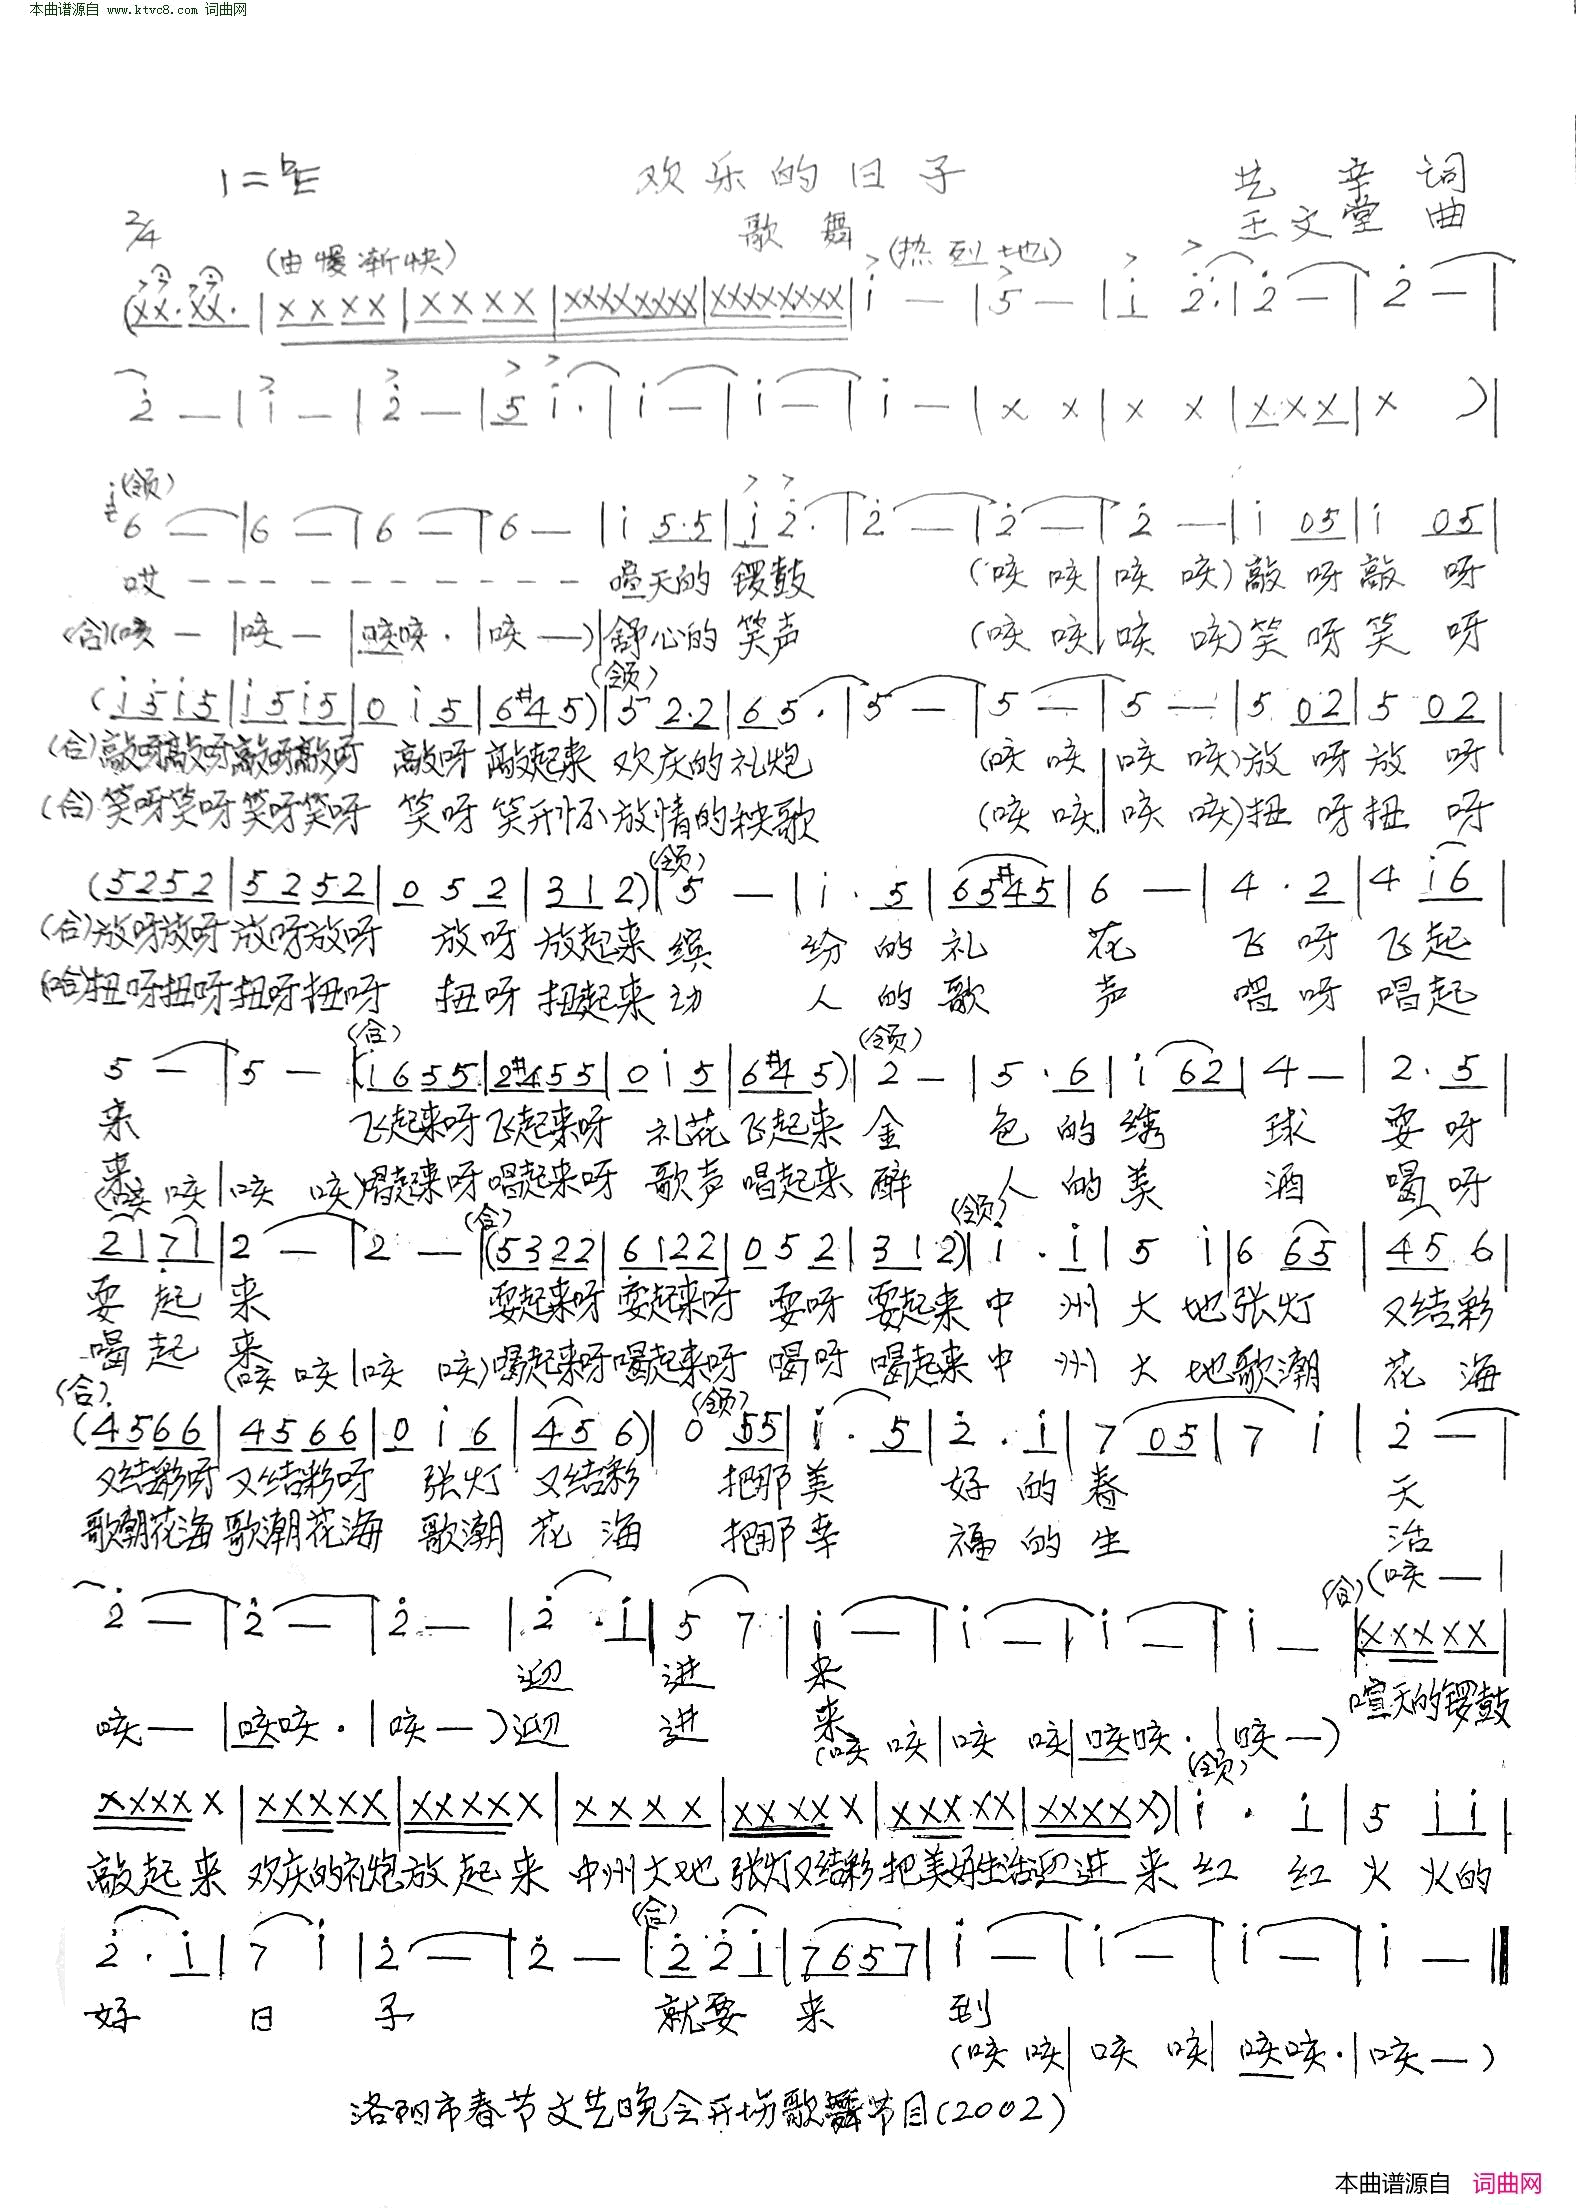 本曲谱源自 www.ktvc8.com 词曲网
1=♭E 欢乐的日子 艺辛 词
2/4 歌舞 王文堂 曲
(由慢渐快) (热烈地)
(xx·xx·|xx xx|xx xx|xxxxxxxx|xxxxxxxx|i —|5 —|i 2·|2 —|2 —|
2 —|i —|2 —|5 i·|i —|i —|i —|x x|x x|x x x|x )|
(领)
6 —|6 —|6 —|6 —|i 5·5|i 2·|2 —|2 —|2 —|i 05|i 05|
哎 - - - - - - - - - - 喧天的 锣鼓 (咳 咳|咳 咳)敲 呀 敲 呀
(合)(咳 —|咳 —|咳咳·|咳 —)|舒心的 笑声 (咳 咳|咳 咳)笑 呀 笑 呀
(领)
(i5i5|i5i5|0 i 5|6#45)|5 2·2|65·|5 —|5 —|5 —|5 02|5 02|
(合)敲呀敲呀敲呀敲呀 敲呀 敲起来 欢庆的礼炮 (咳 咳|咳 咳)放 呀 放 呀
(合)笑呀笑呀笑呀笑呀 笑呀 笑开怀 放情的秧歌 (咳 咳|咳 咳)扭 呀扭 呀
(领)
(5252|5252|0 5 2|312)|5 —|i· 5|65#45|6 —|4· 2|4 i6|
(合)放呀放呀 放呀放呀 放呀 放起来 缤 纷的礼 花 飞 呀 飞起
(合)扭呀扭呀扭呀扭呀 扭呀 扭起来 动 人的歌 声 唱呀 唱起
(合) (领)
5 —|5 —|(i655|2#455|0 i 5|6#45)|2 —|5· 6|i 62|4 —|2· 5|
来 飞起来呀飞起来呀 礼花 飞起来 金 色的绣 球 耍呀
来(咳 咳|咳 咳)唱起来呀唱起来呀 歌声 唱起来 醉 人的美 酒 喝呀
(合) (领)
21 71|2 —|2 —|(5322|6122|0 5 2|312)|i· i|5 i|6 65|45 6|
耍 起 来 耍起来呀 耍起来呀 耍呀 耍起来 中 州 大 地张灯 又结彩
喝 起 来(咳 咳|咳 咳)喝起来呀喝起来呀 喝呀 喝起来 中 州 大 地歌潮 花 海
(合) (领)
(4566|4566|0 i 6|45 6)|0 55|i· 5|2· i|7 05|7 i|2 —|
又结彩呀 又结彩呀 张灯 又结彩 把那美 好的春 天
歌潮花海 歌潮花海 歌潮 花 海 把那幸 福的生 活
(咳 —|
(合)
2 —|2 —|2 —|2· i|5 7|i —|i —|i —|i —|(xxxxx|
迎 进 来 喧天的锣鼓
咳—|咳咳·|咳 —)迎 进 来(咳 咳|咳 咳|咳咳·|咳—)
(领)
xxxx x|xxxxx|xxxx x|xx xx|xxxx x|xxxxx|xxxxx)|i· i|5 ii|
敲起来 欢庆的礼炮放起来 中州大地 张灯又结彩把美好生活迎进来红 红 火 火的
(合)
2· i|7 i|2 —|2 —|2 2i|7657|i —|i —|i —|i —‖
好 日 子 就要 来 到
(咳 咳|咳 咳|咳咳·|咳—)
洛阳市春节文艺晚会开场歌舞节目(2002)
本曲谱源自 词曲网